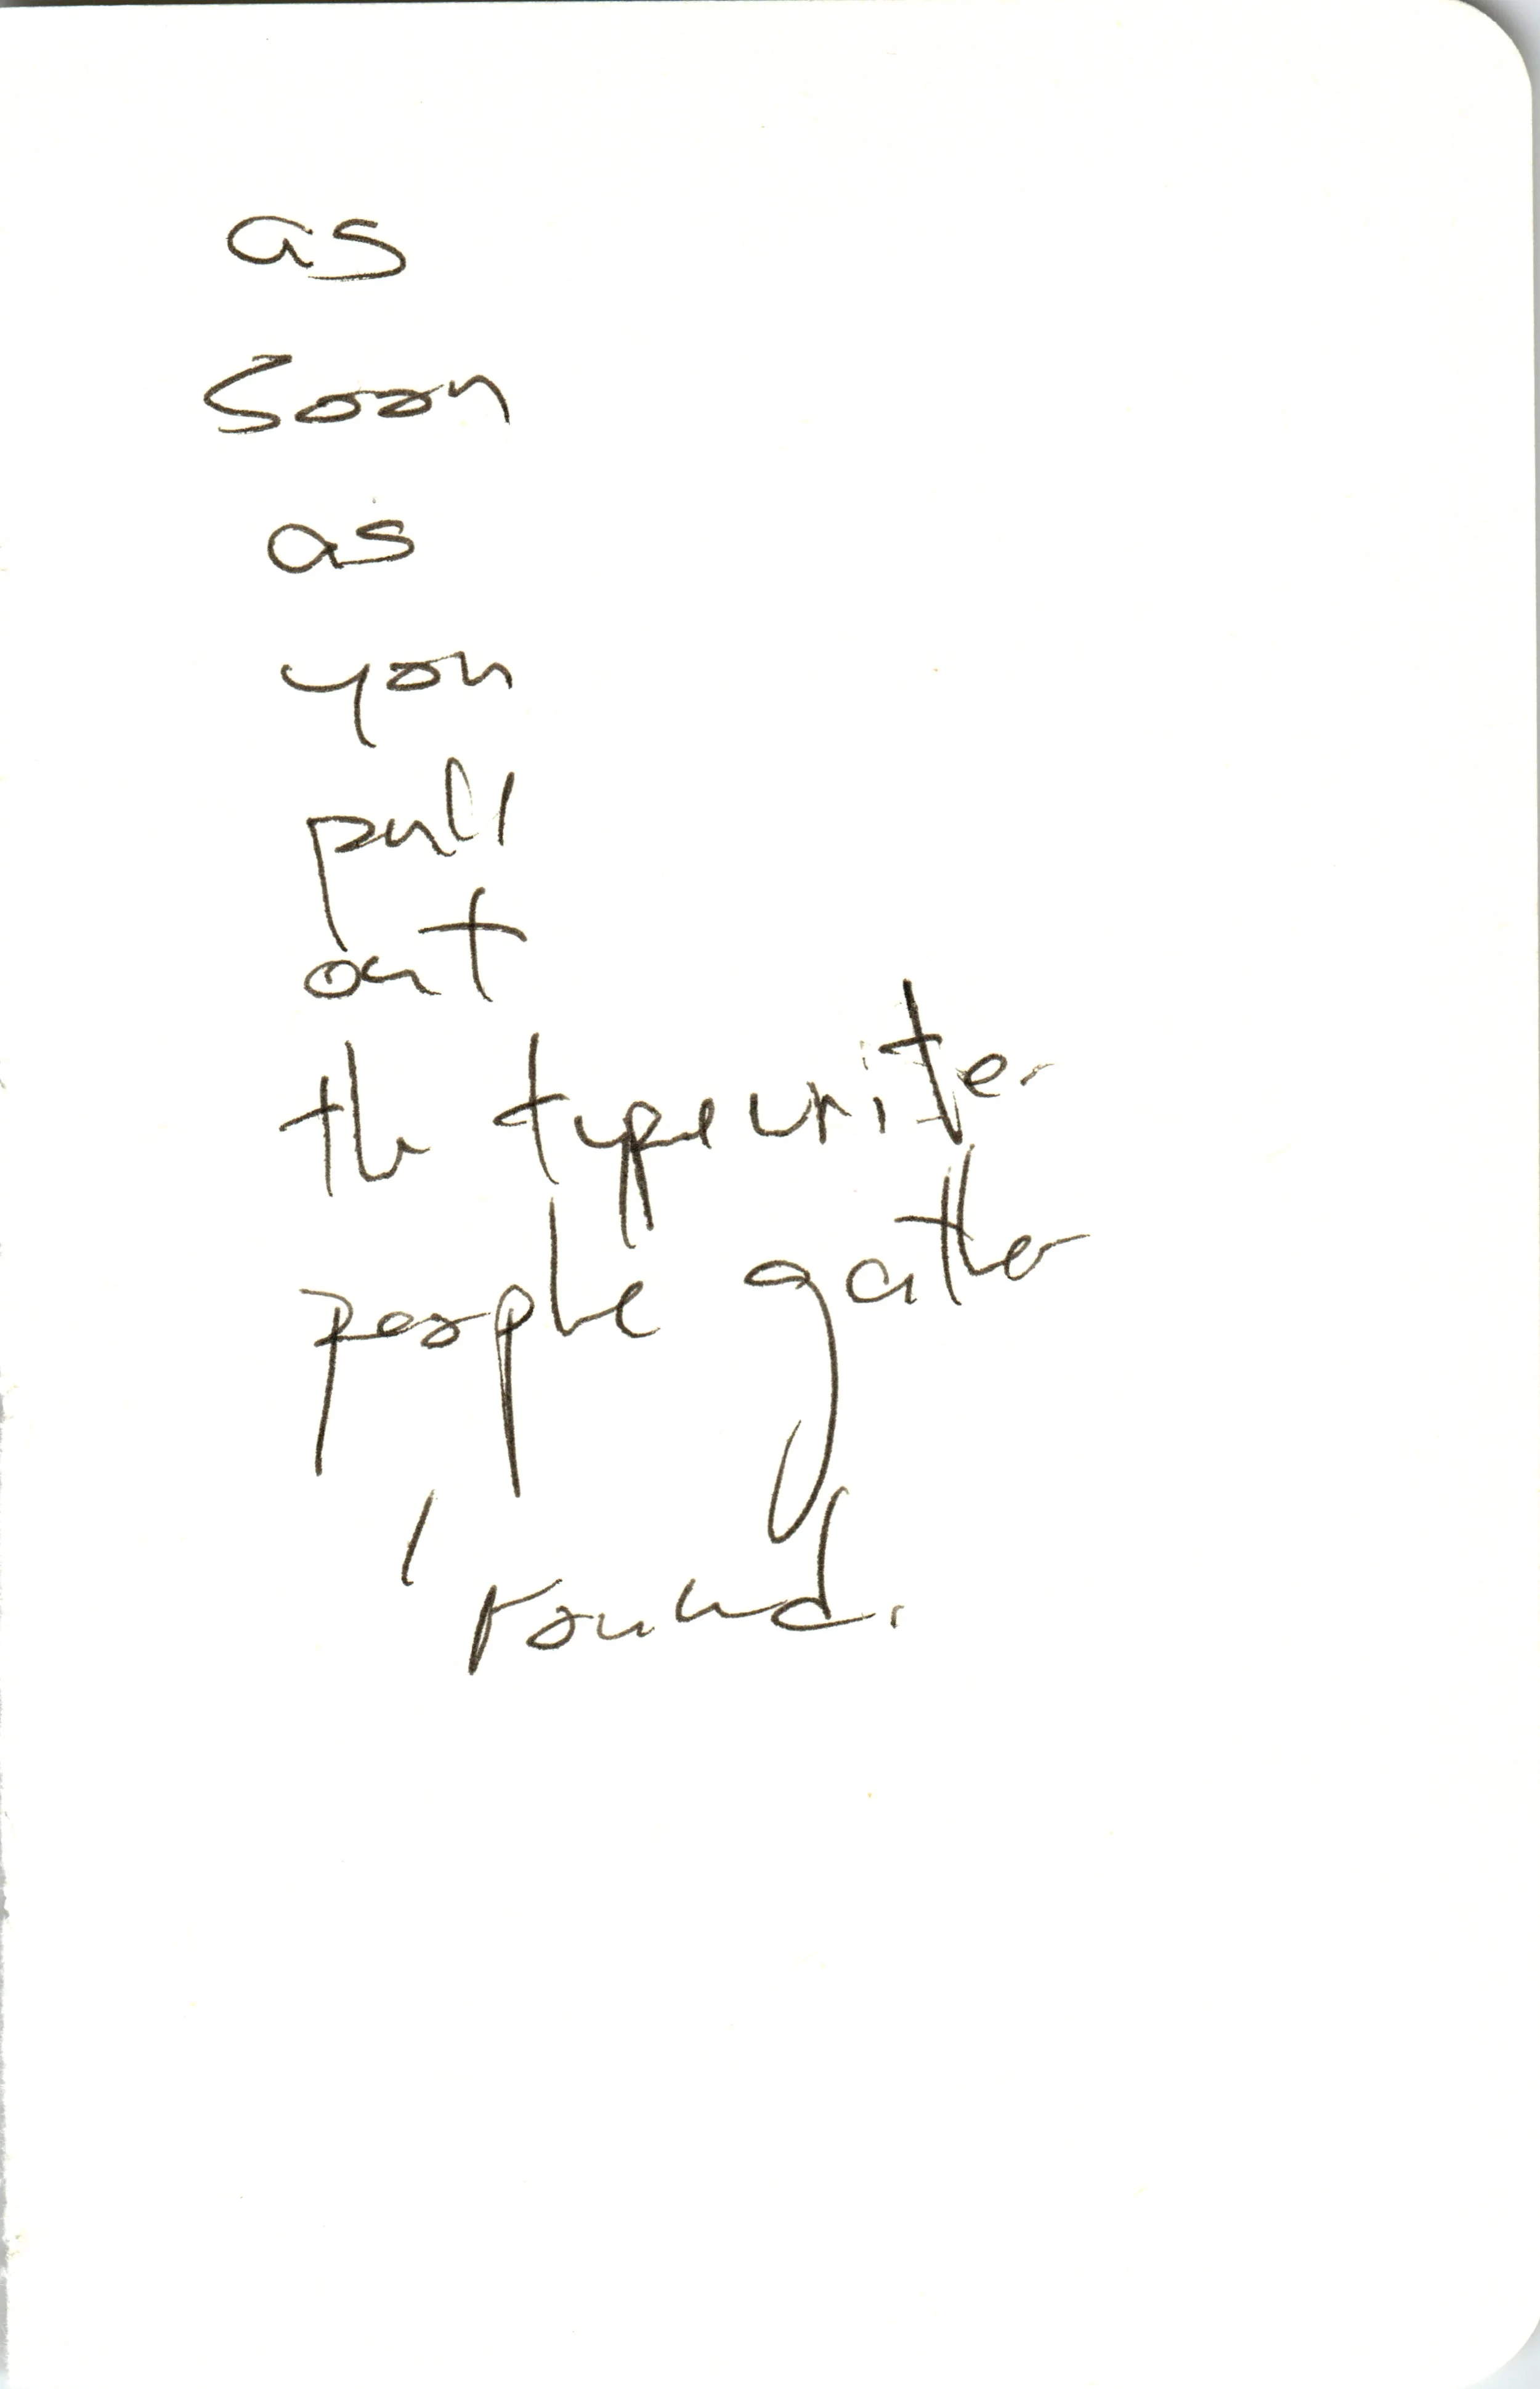 as
soon
as
you
pull
out
the typewriter
people gather
'round.